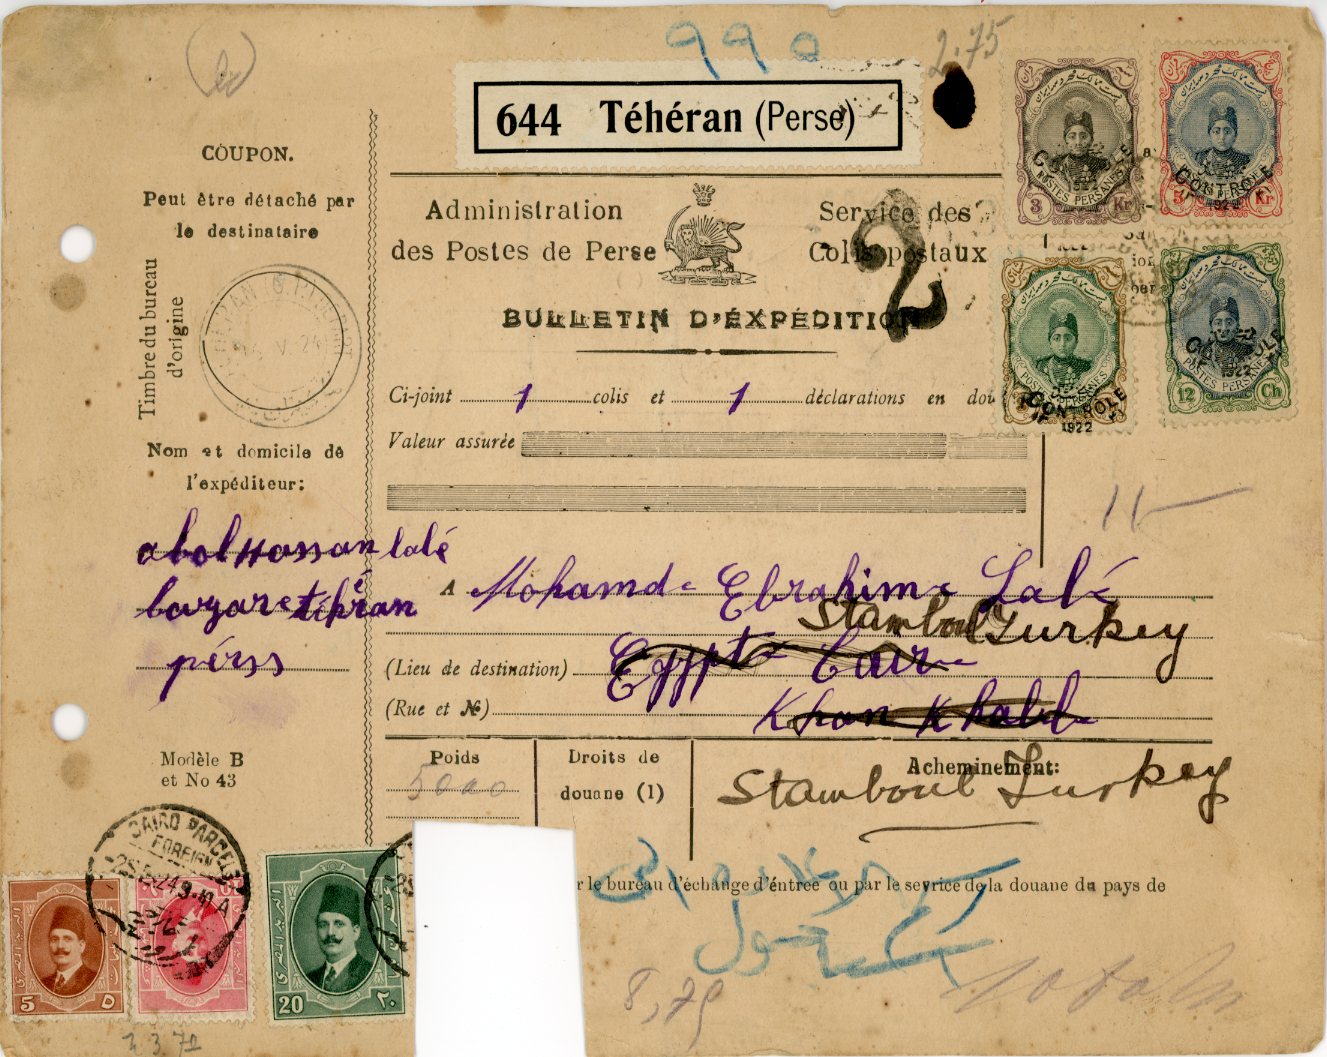 990
2.75
644 Téhéran (Perse)
COUPON.
Peut être détaché par
le destinataire
Timbre du bureau
d'origine
Nom et domicile de
l'expéditeur:
abolHassan lalé
bazare téhéran
pérss
Modèle B
et No 43
Administration
des Postes de Perse
Service des
Colis postaux
2
BULLETIN D'ÉXPÉDITION
Ci-joint 1 colis et 1 déclarations en dou
Valeur assurée
11
A Mohamd Ebrahim Lalé
Stamboul Turkey
(Lieu de destination) Egypt Cair
(Rue et No) Khan Khalil
Poids
5000
Droits de
douane (1)
Acheminement:
Stamboul Turkey
r le bureau d'échange d'éntrée ou par le sevrice de la douane du pays de
8,75
3 Kr
CONTROLE
1922
POSTES PERSANES
5 Kr
CONTROLE
1922
CONTROLE
1922
12 Ch
CONTROLE
1922
POSTES PERSANES
CAIRO PARCELS
FOREIGN
5 ٥
20 ٢٠